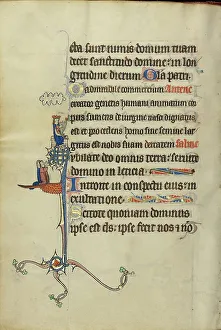 bia sunt nimis domum tuam
decet sanctitudo domine in lon
gitudine dierum Gla patri
admirabile commercium Antene
creator generis humani animatum co
pus sumens de virgine nasci dignatus
est et procedens homo sine semine lar
gitus est nobis suam deitatem
ubilate deo omnis terra: servite
domino in leticia
Introite in conspectu eius in
exultatione
Scitote quoniam dominus
ipse est deus ipse fecit nos i no